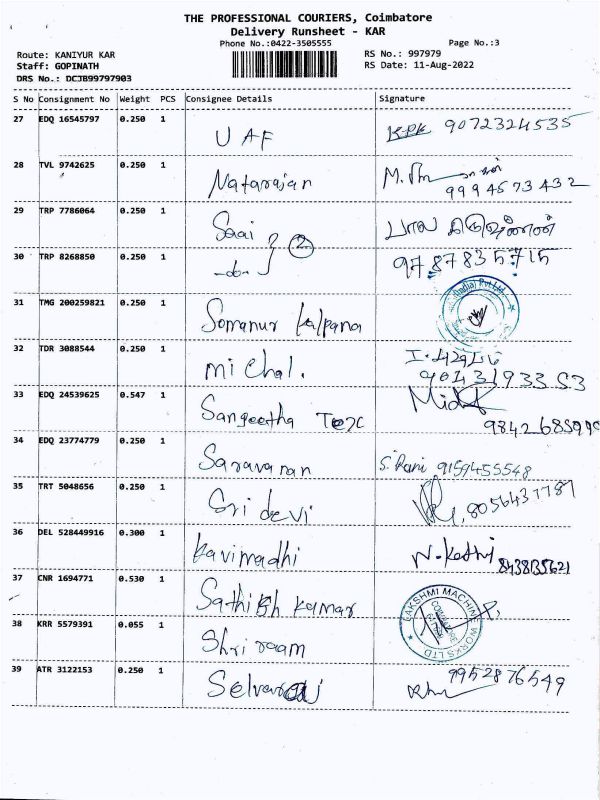 THE PROFESSIONAL COURIERS, Coimbatore
Delivery Runsheet - KAR
Phone No.:0422-3505555
Page No.:3
Route: KANIYUR KAR
RS No.: 997979
Staff: GOPINATH
RS Date: 11-Aug-2022
DRS No.: DCJB99797903
S No Consignment No Weight PCS Consignee Details Signature
27 EDQ 16545797 0.250 1 UAF 9072324535
28 TVL 9742625 0.250 1 Natarajan 9994573432
29 TRP 7786064 0.250 1 Saai 2 பால
30 TRP 8268850 0.250 1 -do- 9787835715
31 TMG 200259821 0.250 1 Somanur Kalpana Pvt Ltd
32 TDR 3088544 0.250 1 michal. 9043193353
33 EDQ 24539625 0.547 1 Sangeetha Tex
34 EDQ 23774779 0.250 1 Saravanan S. Rani 9159455548
35 TRT 5048656 0.250 1 Sri devi 8056437787
36 DEL 528449916 0.300 1 Kavimadhi
37 CNR 1694771 0.530 1 Sathish kumar LAKSHMI MACHINE WORKS LTD
38 KRR 5579391 0.055 1 Shri raam
39 ATR 3122153 0.250 1 Selvaraj 9952876549